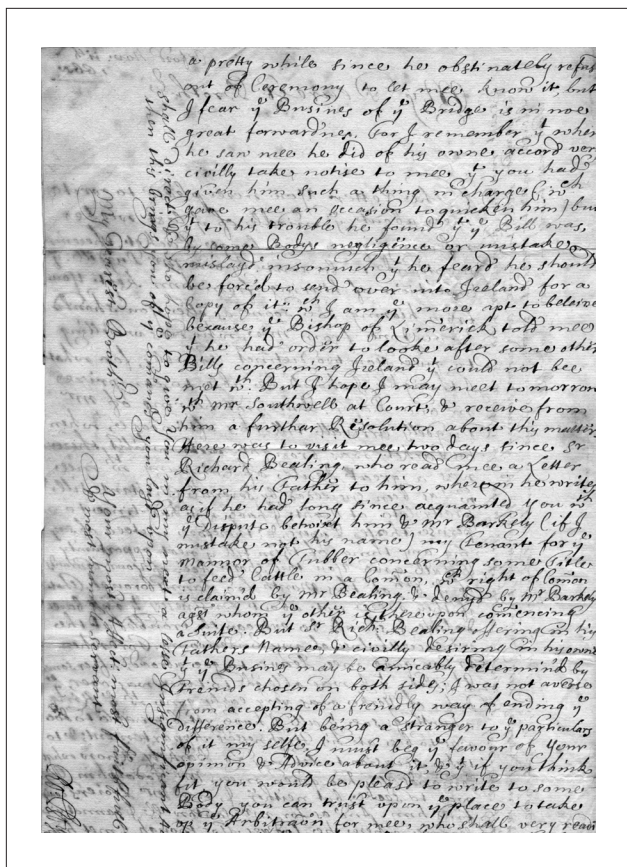 a pretty while since he obstinately refus
out of Ceremony to let mee know it, but
I fear yᵉ Busines of yᵉ Bridge is in noe
great forwardnes, for I remember yᵗ when
he saw mee he did of his owne accord very
civilly take notise to mee yᵗ you had
given him such a thing in charge (wᶜʰ
gave mee an occasion to quicken him) but
yᵗ to his trouble he found yᵗ yᵉ Bill was,
by some Bodys negligence or mistake
mislayd, insomuch yᵗ he feard he should
be forc'd to send over into Ireland for a
Copy of it: wᶜʰ I am yᵉ more apt to beleive
because yᵉ Bishop of Limerick told mee
yᵗ he had order to looke after some other
Bills concerning Ireland yᵗ could not bee
met wᵗʰ. But I hope I may meet tomorrow
wᵗʰ Mr Southwell at Court, & receive from
him a furthar Resolution about this matter.
Here was to visit mee, two days since, Sr
Richard Bealing, who read mee a Letter
from his Father to him, wherein he writes
as if he had long since acquainted you wᵗʰ
yᵉ Dispute betwixt him & Mr Barkely (if I
mistake not his name) my Tenant for yᵉ
Mannor of Tubber concerning some Title
to feed Cattle in a Comon, wᶜʰ right of Comon
is claim'd by Mr Bealing, & deny'd by Mr Barkely
agst whom yᵉ other is thereupon comencing
a Suite. But Sr Rich: Bealing offering in his
Fathers Name, & civilly desiring in his owne
yᵗ yᵉ Busines may be amicably determin'd by
Freinds chosen on both sides; I was not averse
from accepting of a freindly way of ending yᵉ
difference. But being a stranger to yᵉ particulars
of it my selfe, I must beg yᵉ favour of your
opinion & Advice about it, & yᵗ if you think
fit you would be pleas'd to write to some
Body you can trust upon yᵉ place to take
up yᵉ Arbitraon for mee, who shall very readi
My Dearest Brother
Your most Affectionate most faithfull
& most humble servant